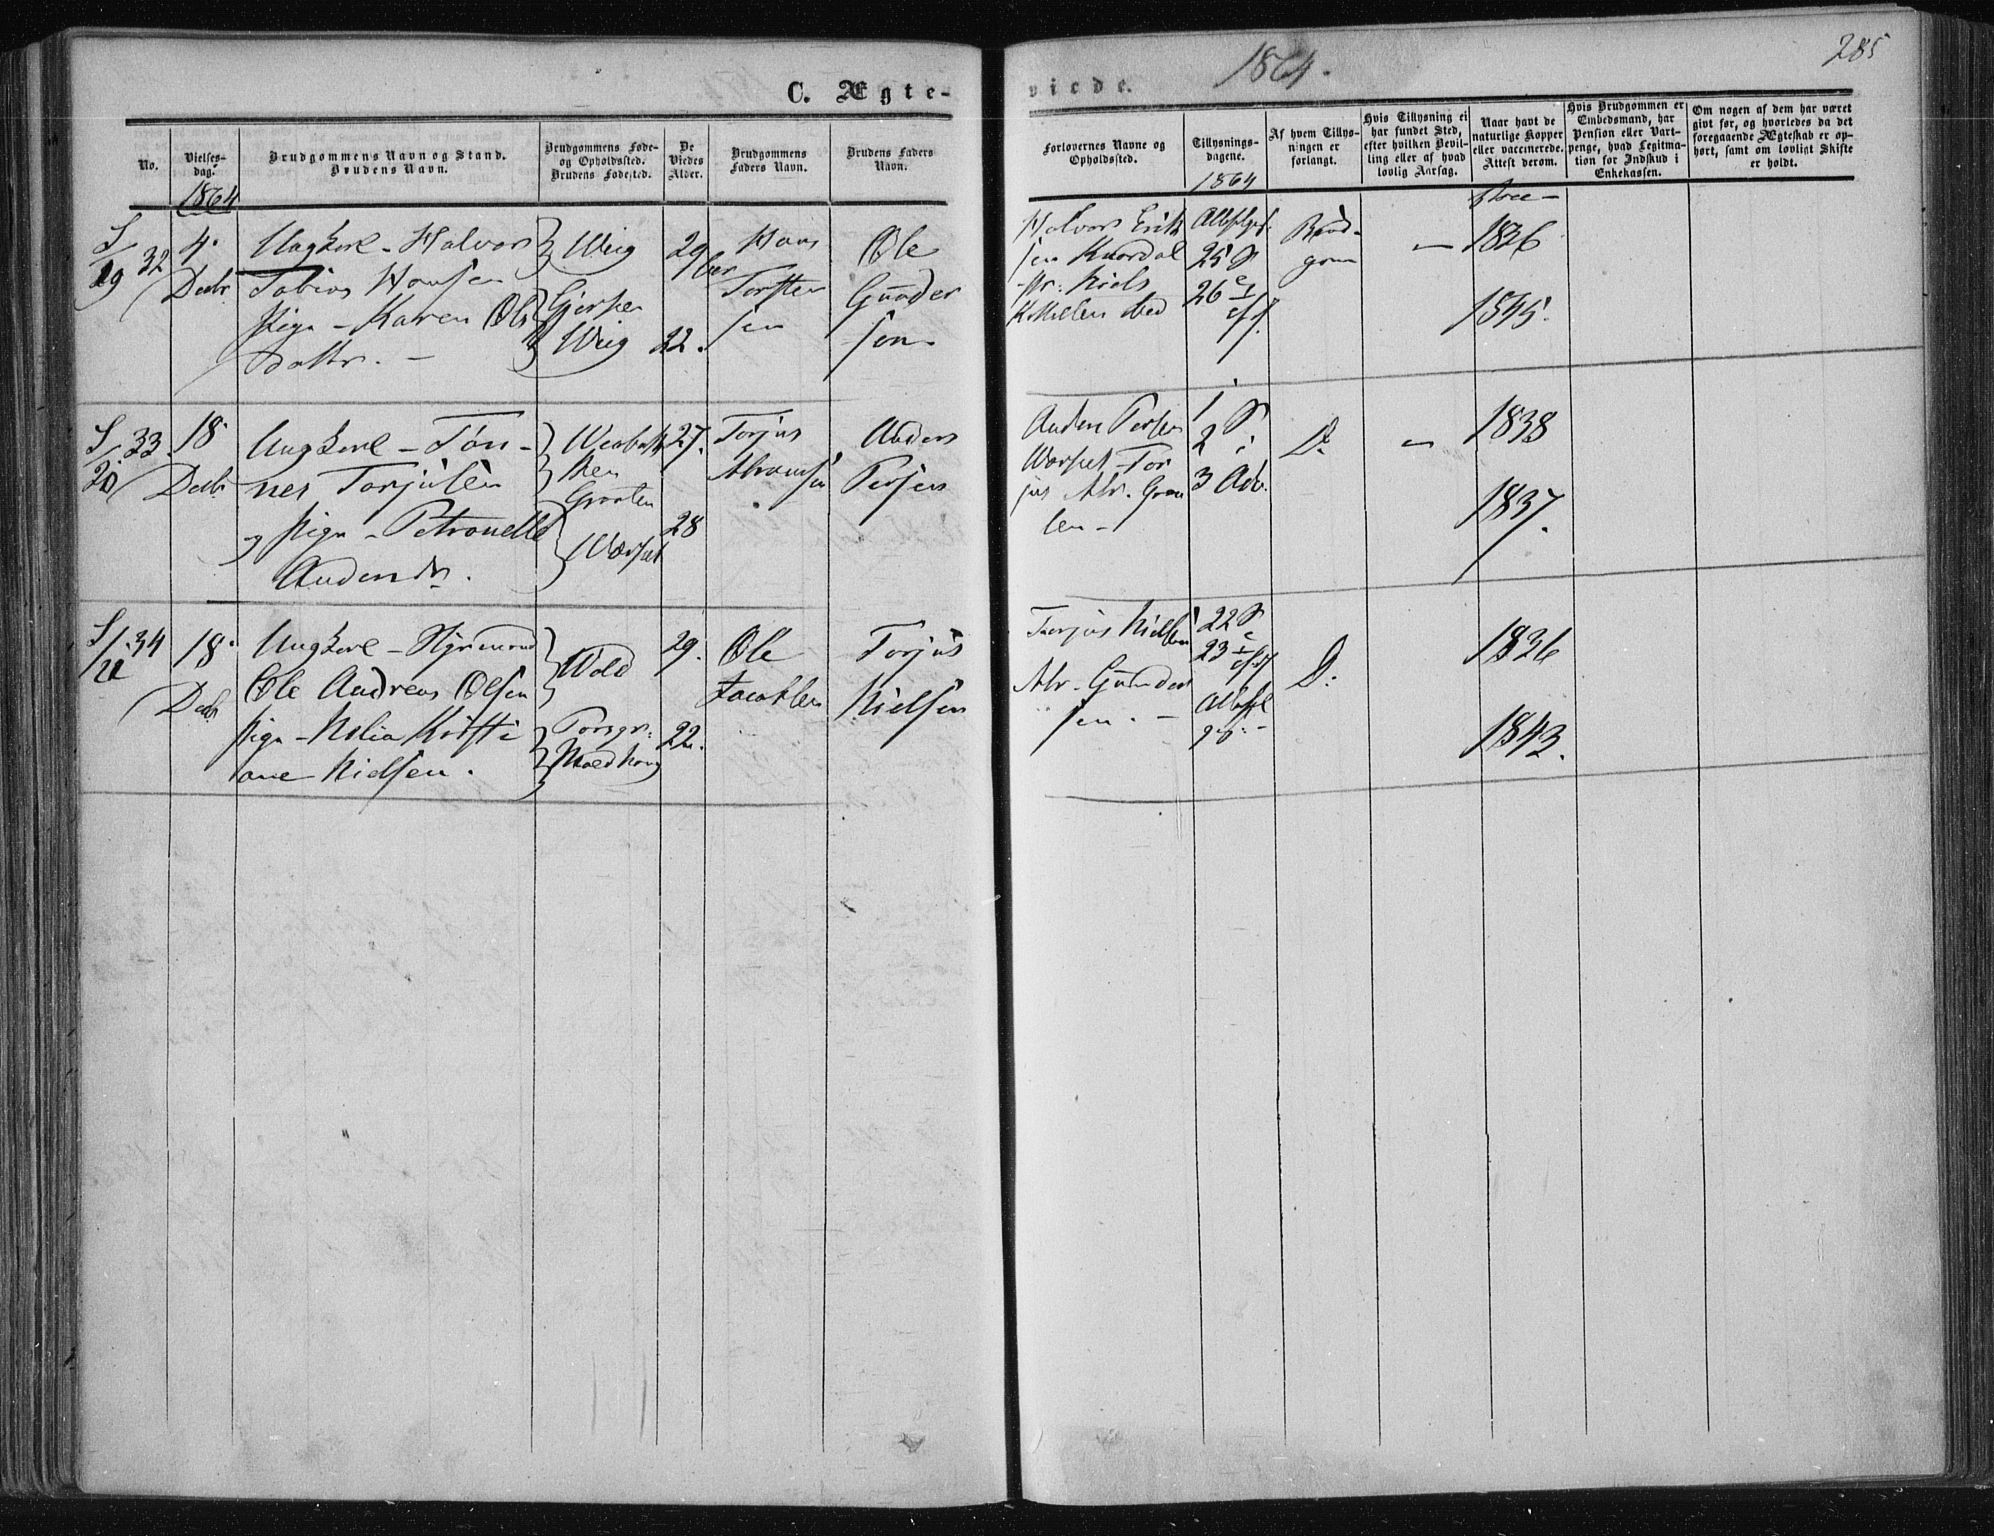 C. Ægte-
No.
Vielses-
dag.
1864
Brudgommens Navn og Stand.
Brudens Navn.
Brudgommens Føde-
og Opholdssted.
Brudens Fødested.
De
Viedes
Alder.
Brudgommens
Faders Navn.
Brudens Faders
Navn.
S/19 32
4.
Decbr.
Ungkarl - Halvor
Tobias Hansen
Pige - Karen Ols
datter. -
Gjerpen
29
22.
Hans
Torsten
sen
Ole
Gunder
sen
S/20 33
18.
Decbr
Ungkarl - Tøn-
nes Torjusen
og Pige - Petronelle
Andersdr.
27.
28
Torjus
Abramsen
Anders
Persen
34
18.
Decbr
Ungkarl - Styrmand
Ole Andreas Olsen
Pige - Nolia Kristi
ane Nielsen.
Wold
Porsgr:
29.
22.
Ole
Jacobsen
Torjus
Nielsen
viede.
1864.
285
Forlovernes Navne og
Opholdssted.
Tillysnings-
dagene.
1864
Af hvem Tillys-
ningen er
forlangt.
Hvis Tillysning ei
har fundet Sted,
efter hvilken Bevil-
ling eller af hvad
lovlig Aarsag.
Naar havt de
naturlige Kopper
eller vaccinerede.
Attest derom.
Hvis Brudgommen er
Embedsmand, har
Pension eller Vart-
penge, hvad Legitima-
tion for Indskud i
Enkekassen.
Om nogen af dem har været
givt før, og hvorledes da det
foregaaende Ægteskab er op-
hørt, samt om lovligt Skifte
er holdt.
Halvor Erik
sen
Niels
25 S
26
Brud-
gom
-
1836
1845.
Anders Persen
Tor
jus Abr.
1
2
3 Adv.
D.
-
1838
1837.
Torjus Nielsen
Abr. Gunder
sen. -
22 S
23
D:
1836
1843.